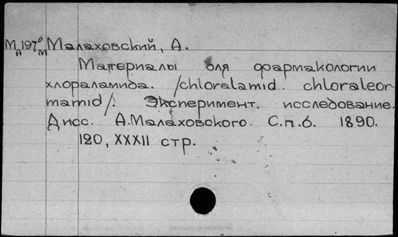 М 197° Малаховский, А.
А м
Материалы для фармакологии
хлораламида. /chloralamid. chloraleor-
mamid/. Эксперимент. исследование.
Дисс. А.Малаховского. С.п.б. 1890.
120, XXXII стр.